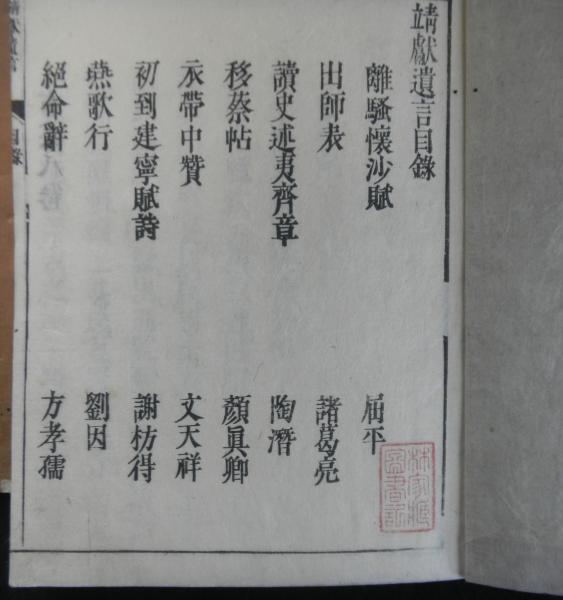 靖獻遺言目錄
離騷懷沙賦 屈平
出師表 諸葛亮
讀史述夷齊章 陶潛
移蔡帖 顏眞卿
衣帶中贊 文天祥
初到建寧賦詩 謝枋得
燕歌行 劉因
絕命辭 方孝孺
目錄